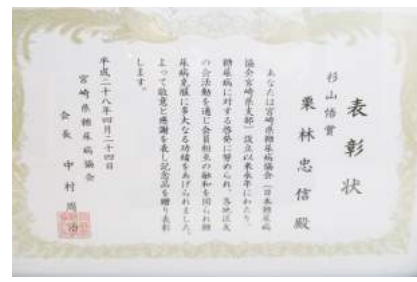 表彰状
杉山悟賞
栗林忠信殿
あなたは宮崎県糖尿病協会(日本糖尿病
協会宮崎県支部)設立以来永年にわたり、
糖尿病に対する啓発に努められ、各地区友
の会活動を通じ会員相互の融和を図られ糖
尿病克服に多大なる功績をあげられました。
よって敬意と感謝を表し記念品を贈り表彰
します。
平成二十八年四月二十四日
宮崎県糖尿病協会
会長 中村周治